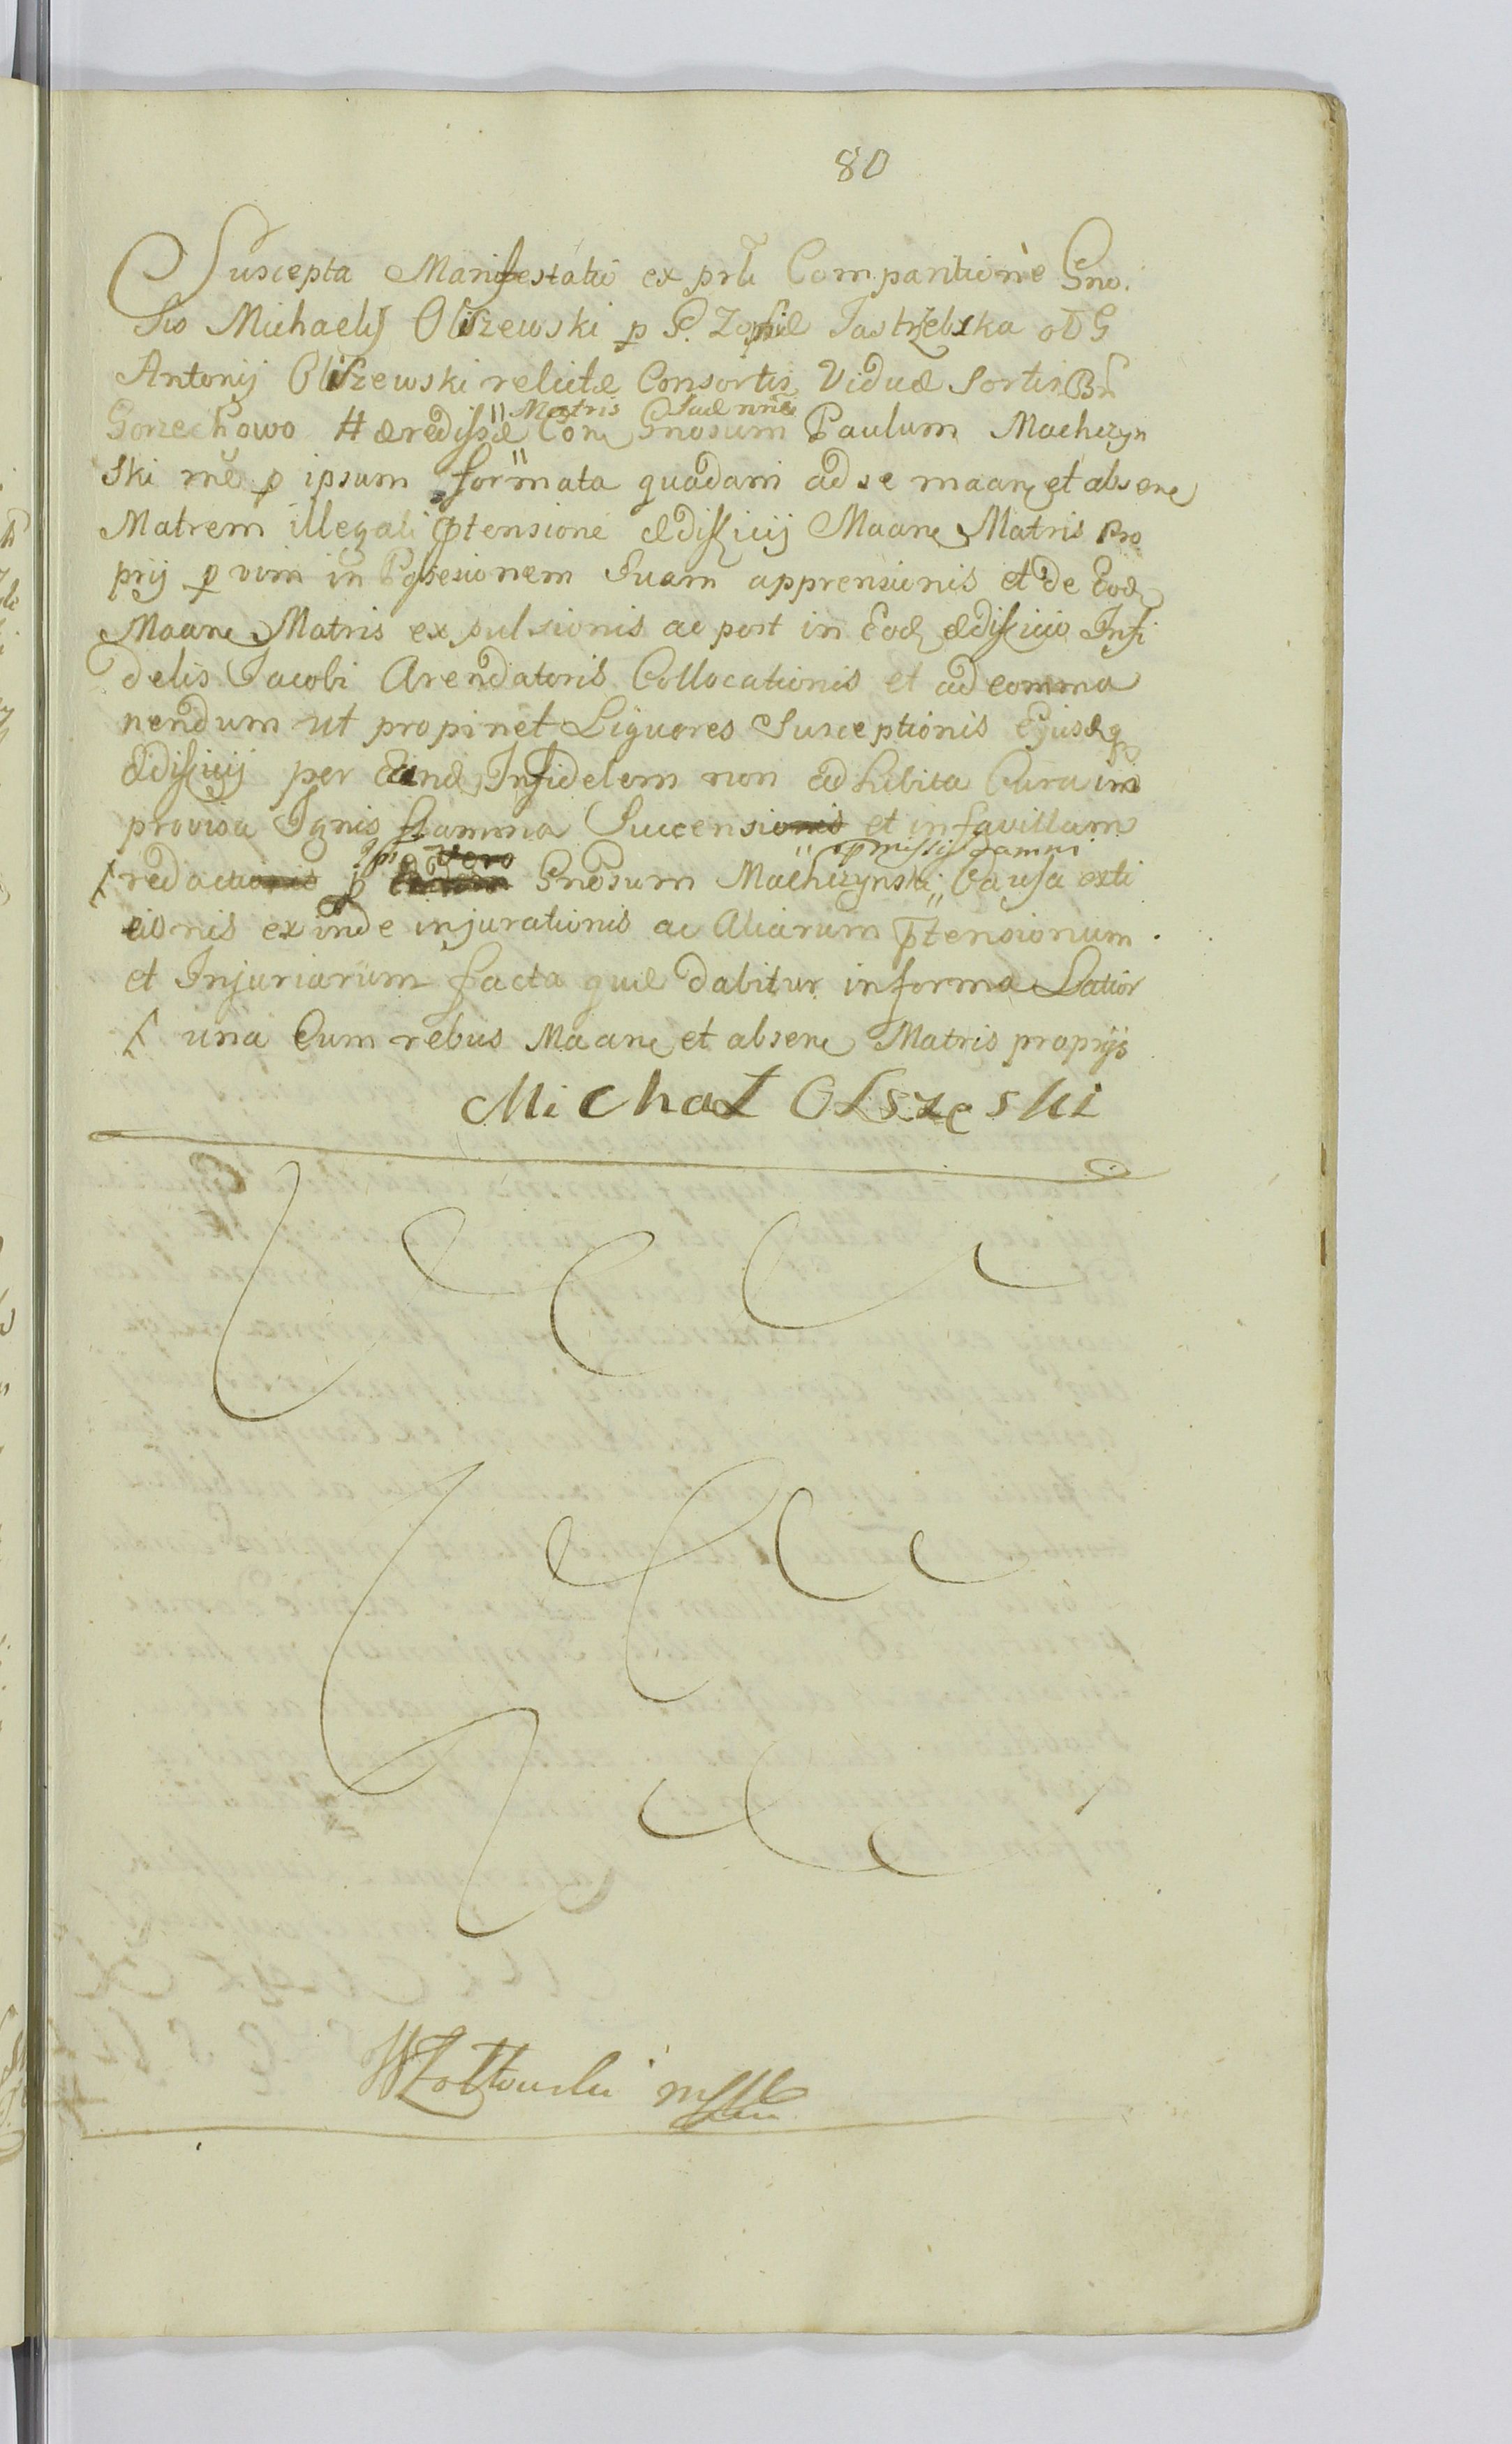 80
Suscepta Manifestatio ex prti Comparitione Gno.
sio Michaelis Olszewski p G. Zophiæ Jastrzębska ol G
Antonij Olszewski relictæ Consortis Viduæ Sortis Bn
Matris Suæ nne
Gorzechowo Hæredissæ Con Gnosum Paulum Machczyn
ski rne p ipsum formata quadam ad se maane et absene
Matrem illegali ptensione ædificij Maane Matris Pro
prij p vim in Possesionem Suam apprensionis et de Eod
Maane Matris expulsionis ac post in Eod ædificio Infi
delis Jacobi Arendatoris Collocationis et ad comma
nendum ut propinet Liquores Susceptionis Ejusdq
Ædificij per Eund Infidelem non adhibita Cura im
provisa Ignis flamma Succensionis et in favillam
vero pmissis damni
redactionis p Gnosum Machczynski Causa exti
cionis exinde injurationis ac Aliarum ptensionum
et Injuriarum facta quæ dabitur in forma Latior
una Cum rebus Maane et absene Matris proprijs
Michał Olszeski
WZołtowski mpp